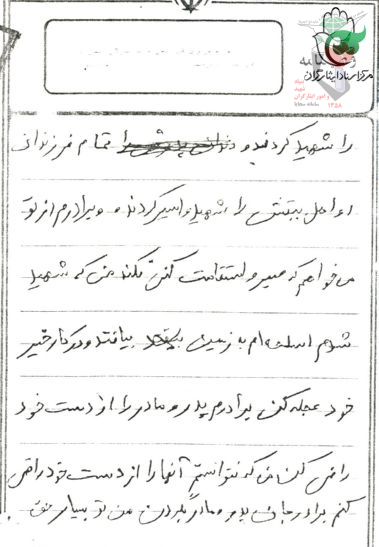 مرکز اسناد ایثارگران
بنیاد
شهید
و امور ایثارگران
۱۳۵۸
را شهید کردند و تمام فرزندان
و اهل بیتش را شهید و اسیر کردند و برادرم از تو
می‌خواهم که صبر و استقامت کنی نکند من که شهید
شدم اسلحه‌ام به زمین بیافتد و در کار خیر
خود عجله کن برادرم پدر و مادر را از دست خود
راضی کن من که نتوانستم آنها را از دست خود راضی
کنم برادر جان پدر و مادر بگردن من تو بسیار حق